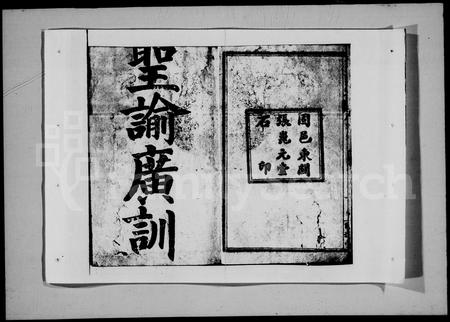 聖諭廣訓
固邑東關
張堯元堂
石印
FamilySearch